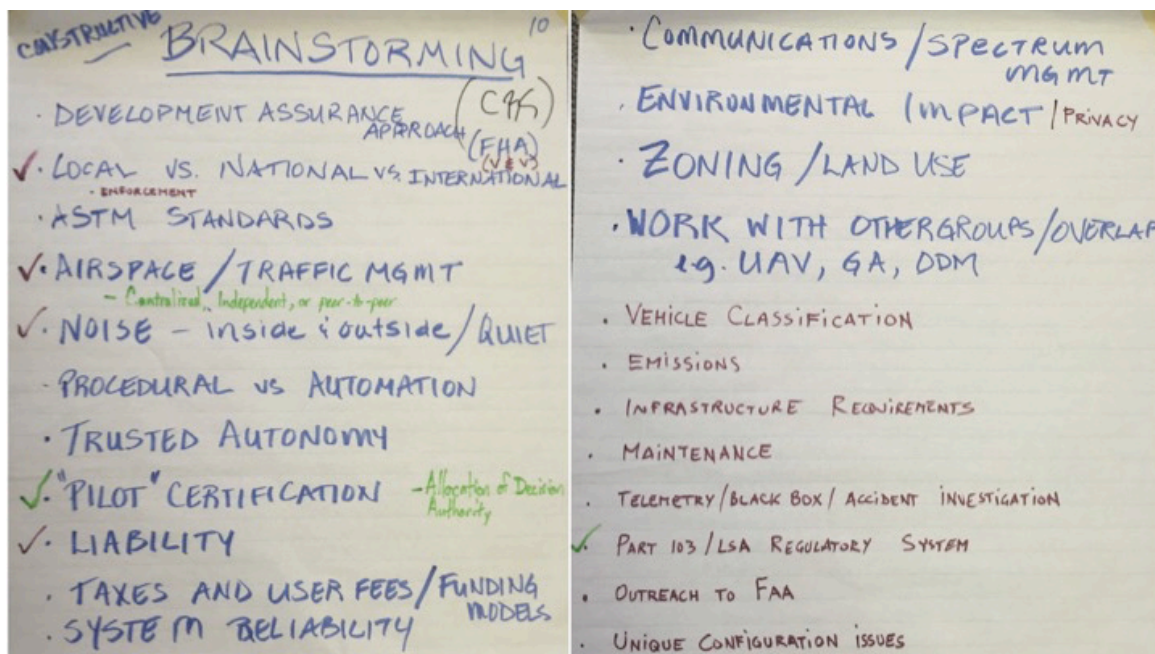 CONSTRUCTIVE
BRAINSTORMING
10
· DEVELOPMENT ASSURANCE
APPROACH
(FHA)
(V & V)
✓ · LOCAL VS. NATIONAL VS. INTERNATIONAL
· ENFORCEMENT
· ASTM STANDARDS
✓ · AIRSPACE / TRAFFIC MGMT
- Centralized, Independent, or peer-to-peer
✓ · NOISE - inside & outside / QUIET
· PROCEDURAL VS AUTOMATION
· TRUSTED AUTONOMY
✓ · "PILOT" CERTIFICATION
- Allocation of Decision
Authority
✓ · LIABILITY
· TAXES AND USER FEES / FUNDING
MODELS
· SYSTEM RELIABILITY
· COMMUNICATIONS / SPECTRUM
MGMT
· ENVIRONMENTAL IMPACT / PRIVACY
· ZONING / LAND USE
· WORK WITH OTHER GROUPS / OVERLAP
e.g. UAV, GA, ODM
· VEHICLE CLASSIFICATION
· EMISSIONS
· INFRASTRUCTURE REQUIREMENTS
· MAINTENANCE
· TELEMETRY / BLACK BOX / ACCIDENT INVESTIGATION
✓ · PART 103 / LSA REGULATORY SYSTEM
· OUTREACH TO FAA
· UNIQUE CONFIGURATION ISSUES